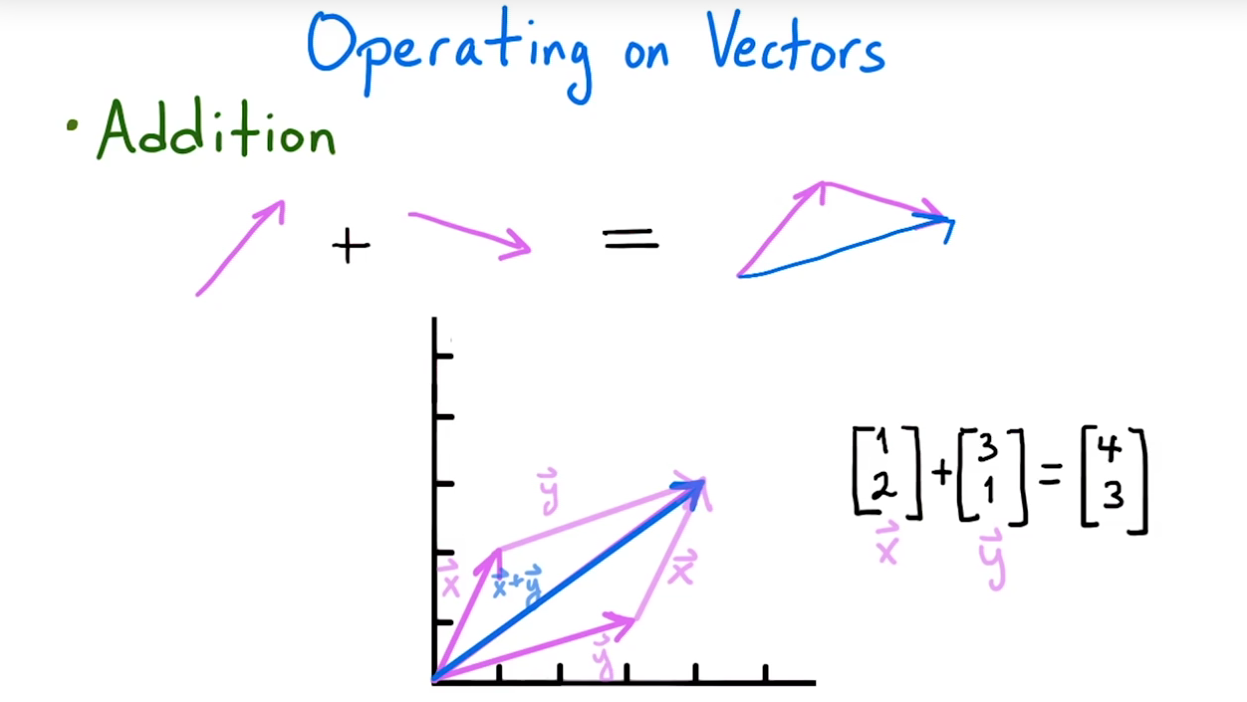 Operating on Vectors
• Addition
+ =
y⃗
x⃗
x⃗+y⃗
x⃗
y⃗
[1 2] + [3 1] = [4 3]
x⃗ y⃗